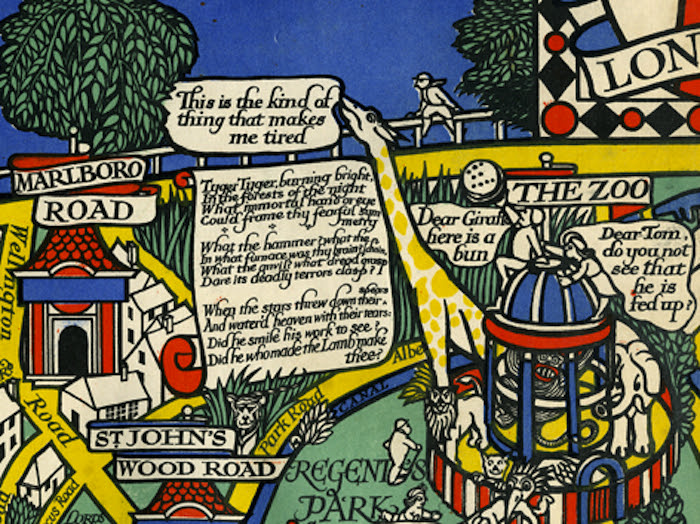 This is the kind of
thing that makes
me tired
LON
MARLBORO
ROAD
Tyger Tyger, burning bright,
In the forests of the night
What immortal hand or eye
Could frame thy fearful sym
metry
What the hammer? what the
In what furnace was thy brain?
What the anvil? what dread grasp
Dare its deadly terrors clasp?
spears
When the stars threw down their
And water'd heaven with their tears:
Did he smile his work to see?
Did he who made the Lamb make
thee?
THE ZOO
Dear Giraffe
here is a
bun
Dear Tom
do you not
see that
he is
fed up?
Wellington
Road
Albe
CANAL
Park Road
ST JOHN'S
WOOD ROAD
REGENT'S
PARK
Road
LORDS